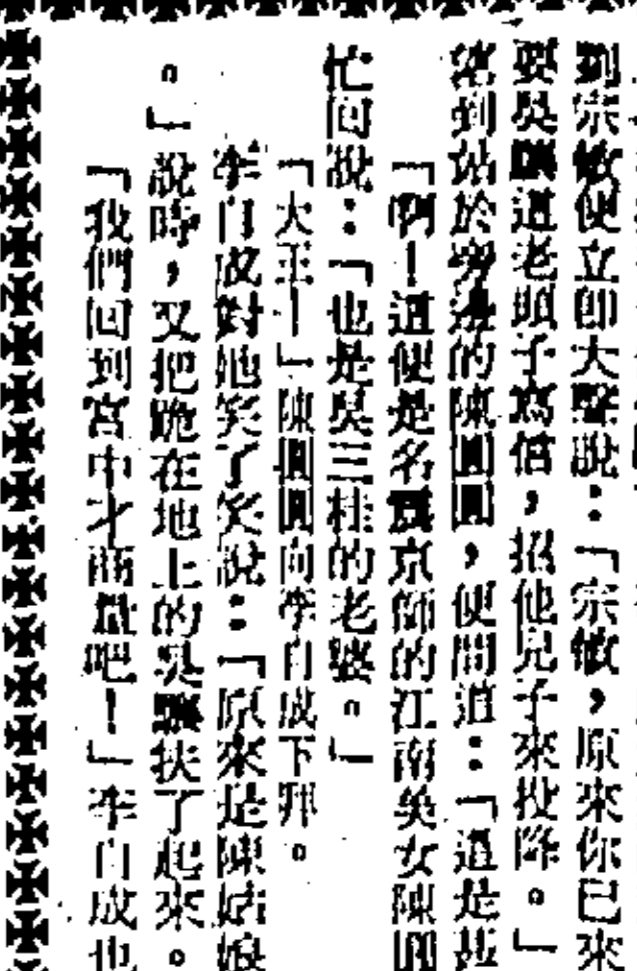 劉宗敏便立即大聲說：「宗敏，原來你已來
要吳驤這老頭子寫信，招他兒子來投降。」
望到站於旁邊的陳圓圓，便問道：「這是
「啊！這便是名震京師的江南美女陳圓
忙回說：「也是吳三桂的老婆。」
「大王！」陳圓圓向李自成下拜。
李自成對她笑了笑說：「原來是陳姑娘
。」說時，又把跪在地上的吳驤扶了起來。
「我們回到宮中才商量吧！」李自成也